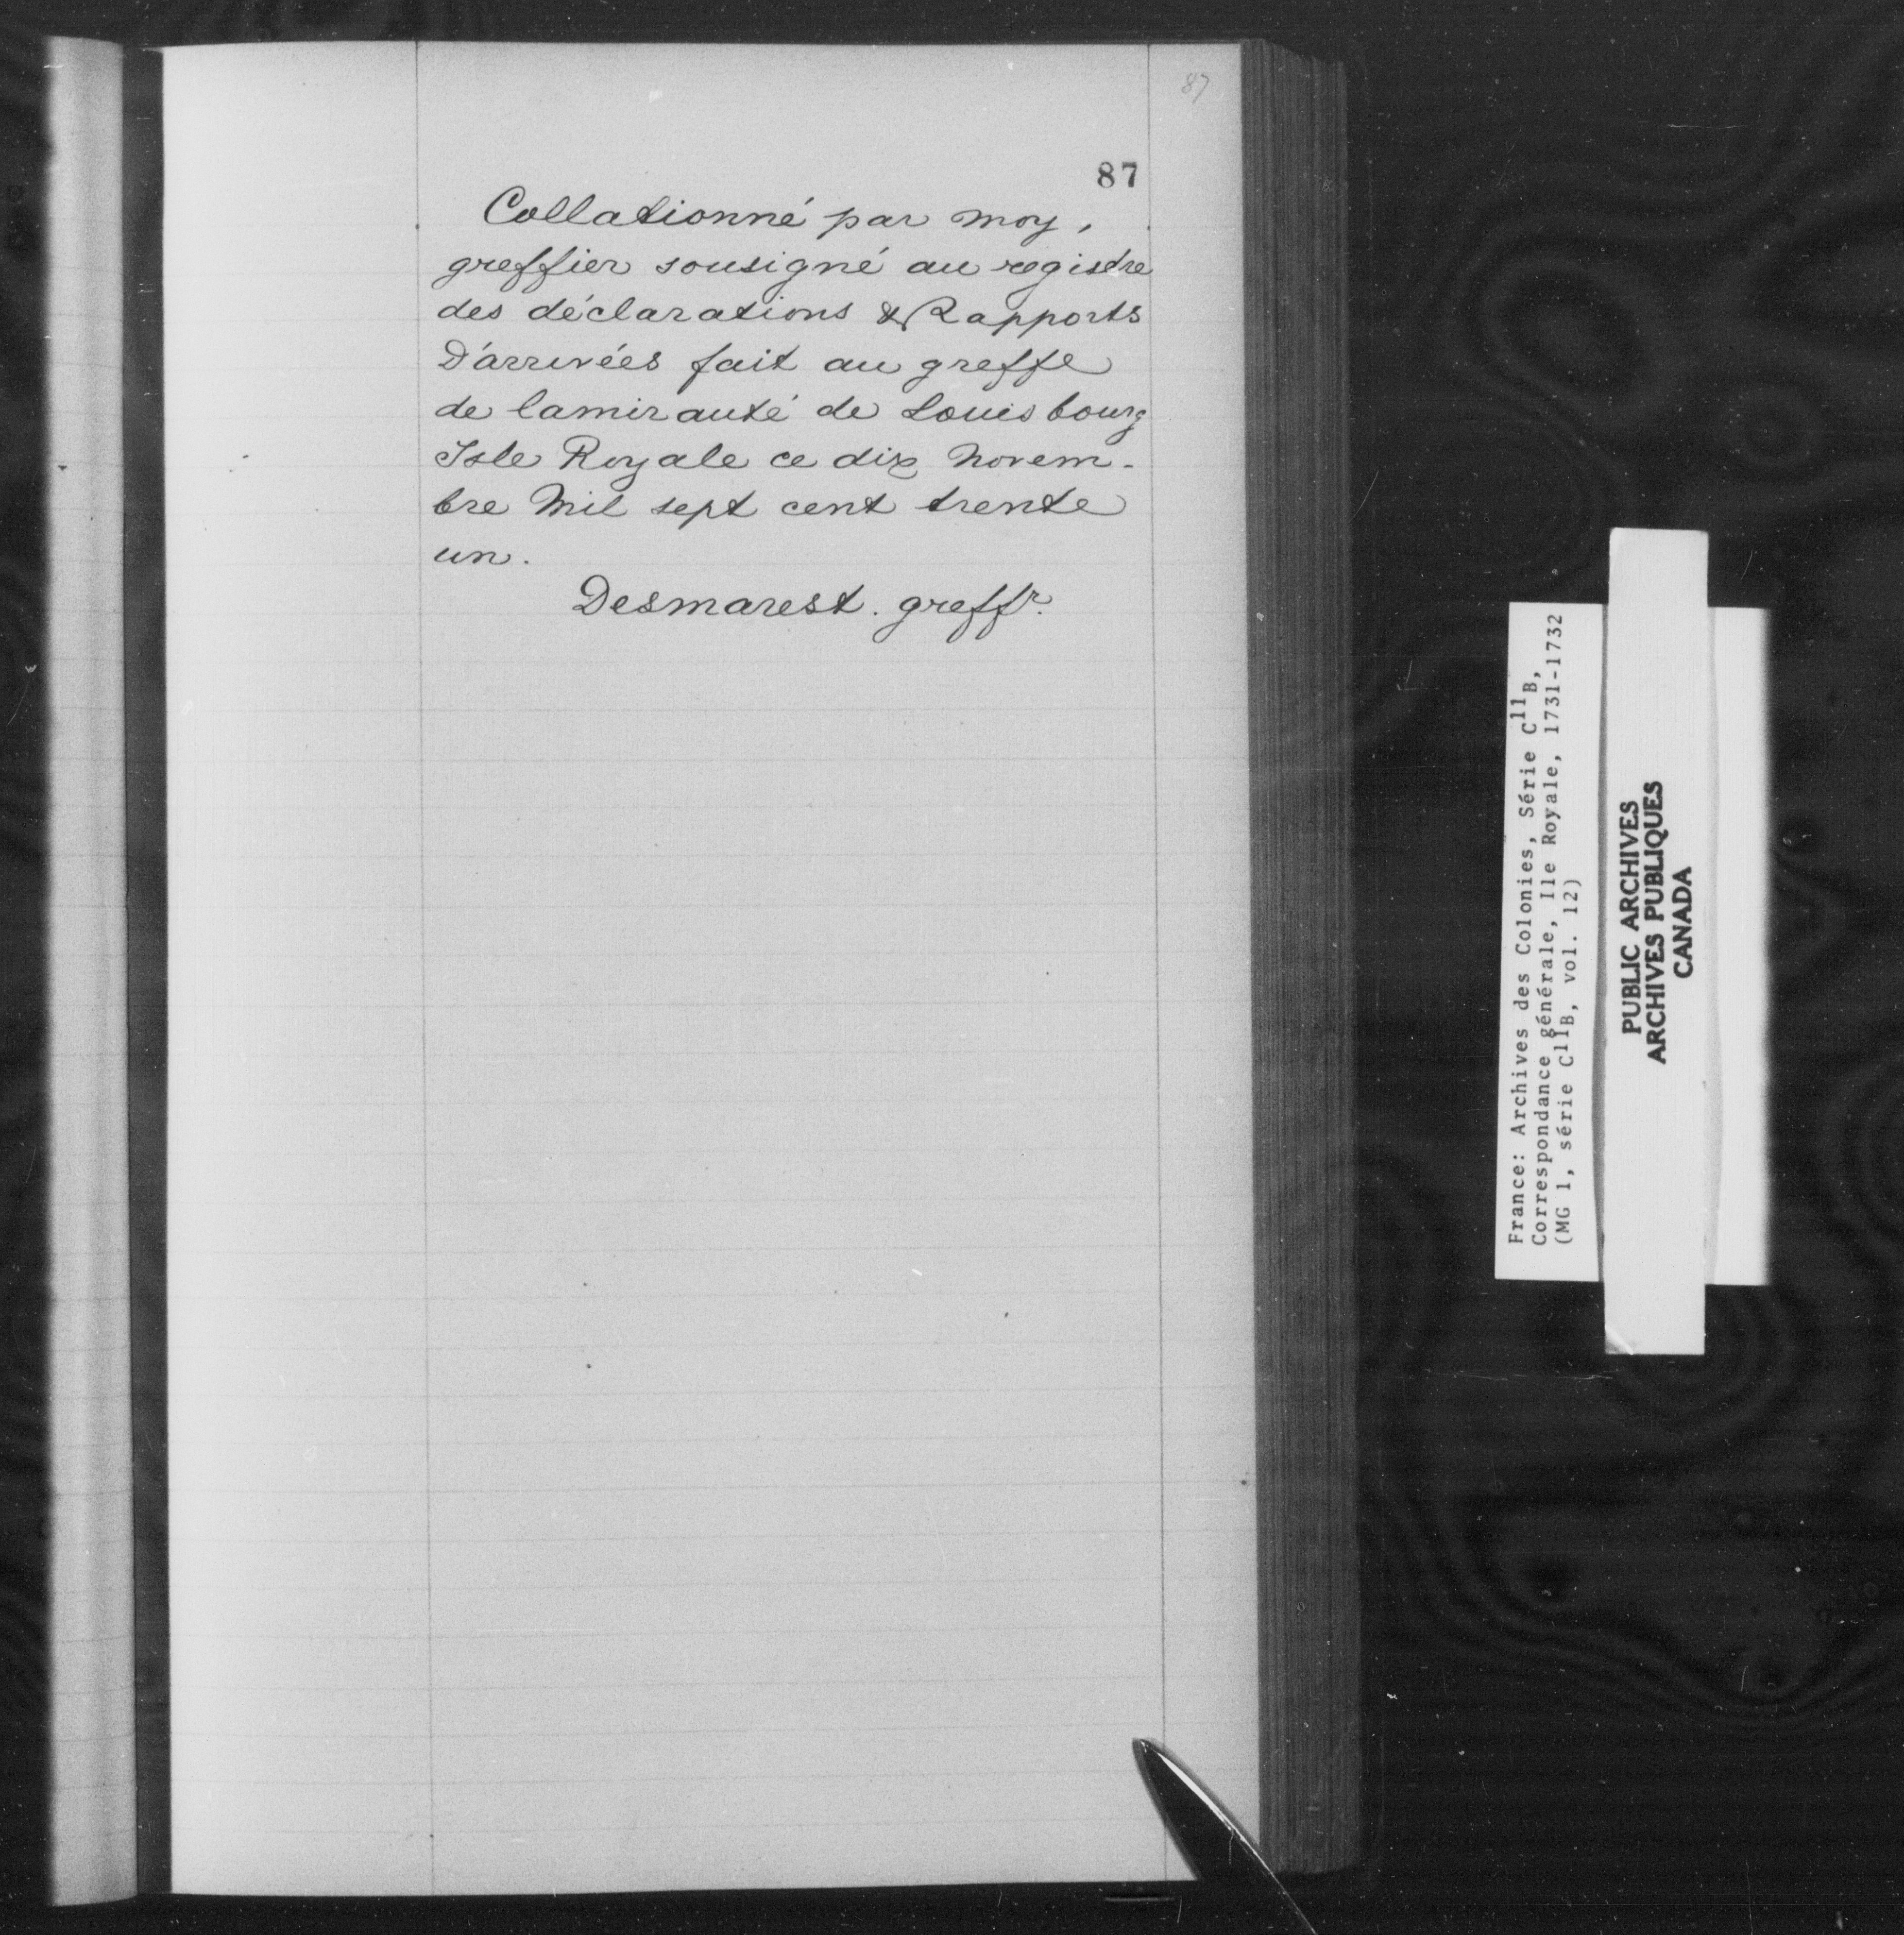 87
87
Collationné par moy,
greffier sousigné au registre
des déclarations & Rapports
D'arrivées fait au greffe
de lamirauté de Louisbourg
Isle Royale ce dix Novem-
bre Mil sept cent trente
un.
Desmarest. greffr.
France: Archives des Colonies, Série C11B,
Correspondance générale, Ile Royale, 1731-1732
(MG 1, série C11B, vol. 12)
PUBLIC ARCHIVES
ARCHIVES PUBLIQUES
CANADA